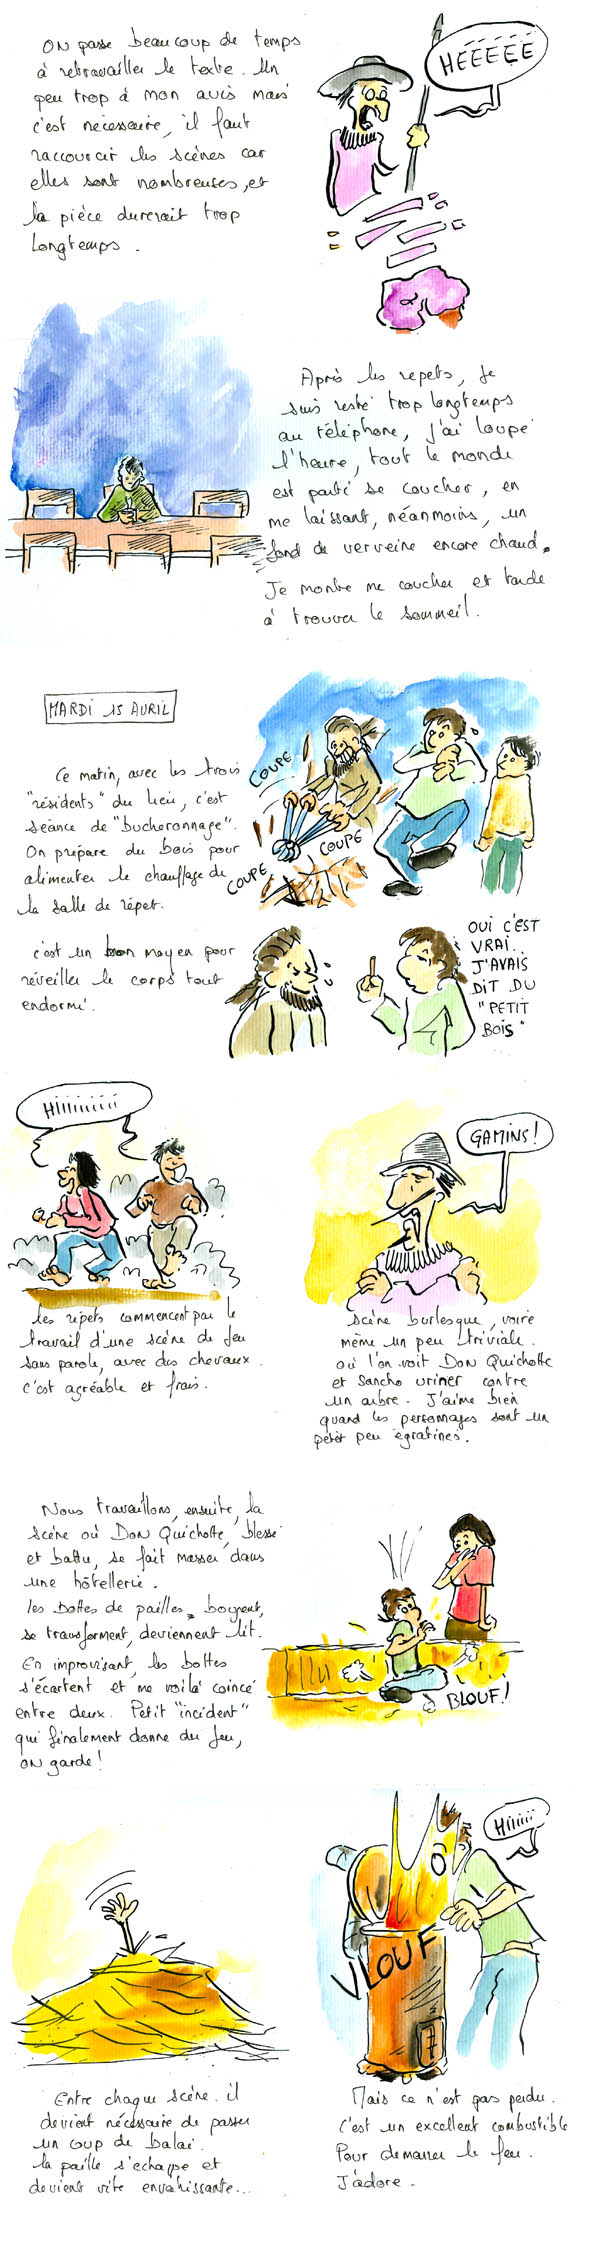 ON passe beaucoup de temps
à retravailler le texte. Un
peu trop à mon avis mais
c'est nécessaire, il faut
raccourcir les scènes car
elles sont nombreuses, et
la pièce durerait trop
longtemps.
HÉÉÉÉÉ
Après les repets, je
suis resté trop longtemps
au téléphone, j'ai loupé
l'heure, tout le monde
est parti se coucher, en
me laissant, néanmoins, un
fond de verveine encore chaud.
Je monte me coucher et tarde
à trouver le sommeil.
MARDI 15 AVRIL
Ce matin, avec les trois
"résidents" du lieu, c'est
séance de "bucheronnage".
On prépare du bois pour
alimenter le chauffage de
la salle de répet.
c'est un bon moyen pour
réveiller le corps tout
endormi.
COUPE
COUPE
COUPE
OUI C'EST
VRAI..
J'AVAIS
DIT DU
"PETIT
BOIS"
HIIIIIIIIII
les répets commencent par le
travail d'une scène de jeu
sans parole, avec des chevaux.
c'est agréable et frais.
GAMINS!
Scène burlesque, voire
même un peu triviale.
où l'on voit DON Quichotte
et Sancho uriner contre
un arbre. J'aime bien
quand les personnages sont un
petit peu égratinés.
Nous travaillons, ensuite, la
scène où DON Quichotte, blessé
et battu, se fait masser dans
une hôtellerie.
les bottes de pailles, bougent,
se transforment, deviennent lit.
En improvisant, les bottes
s'écartent et me voilà coincé
entre deux. Petit "incident"
qui finalement donne du jeu,
on garde!
BLOUF!
Hiiiiii
VLOUF
Entre chaque scène. il
devient nécessaire de passer
un coup de balai.
la paille s'échappe et
devient vite envahissante...
Mais ce n'est pas perdu.
C'est un excellent combustible
Pour démarrer le feu.
J'adore.